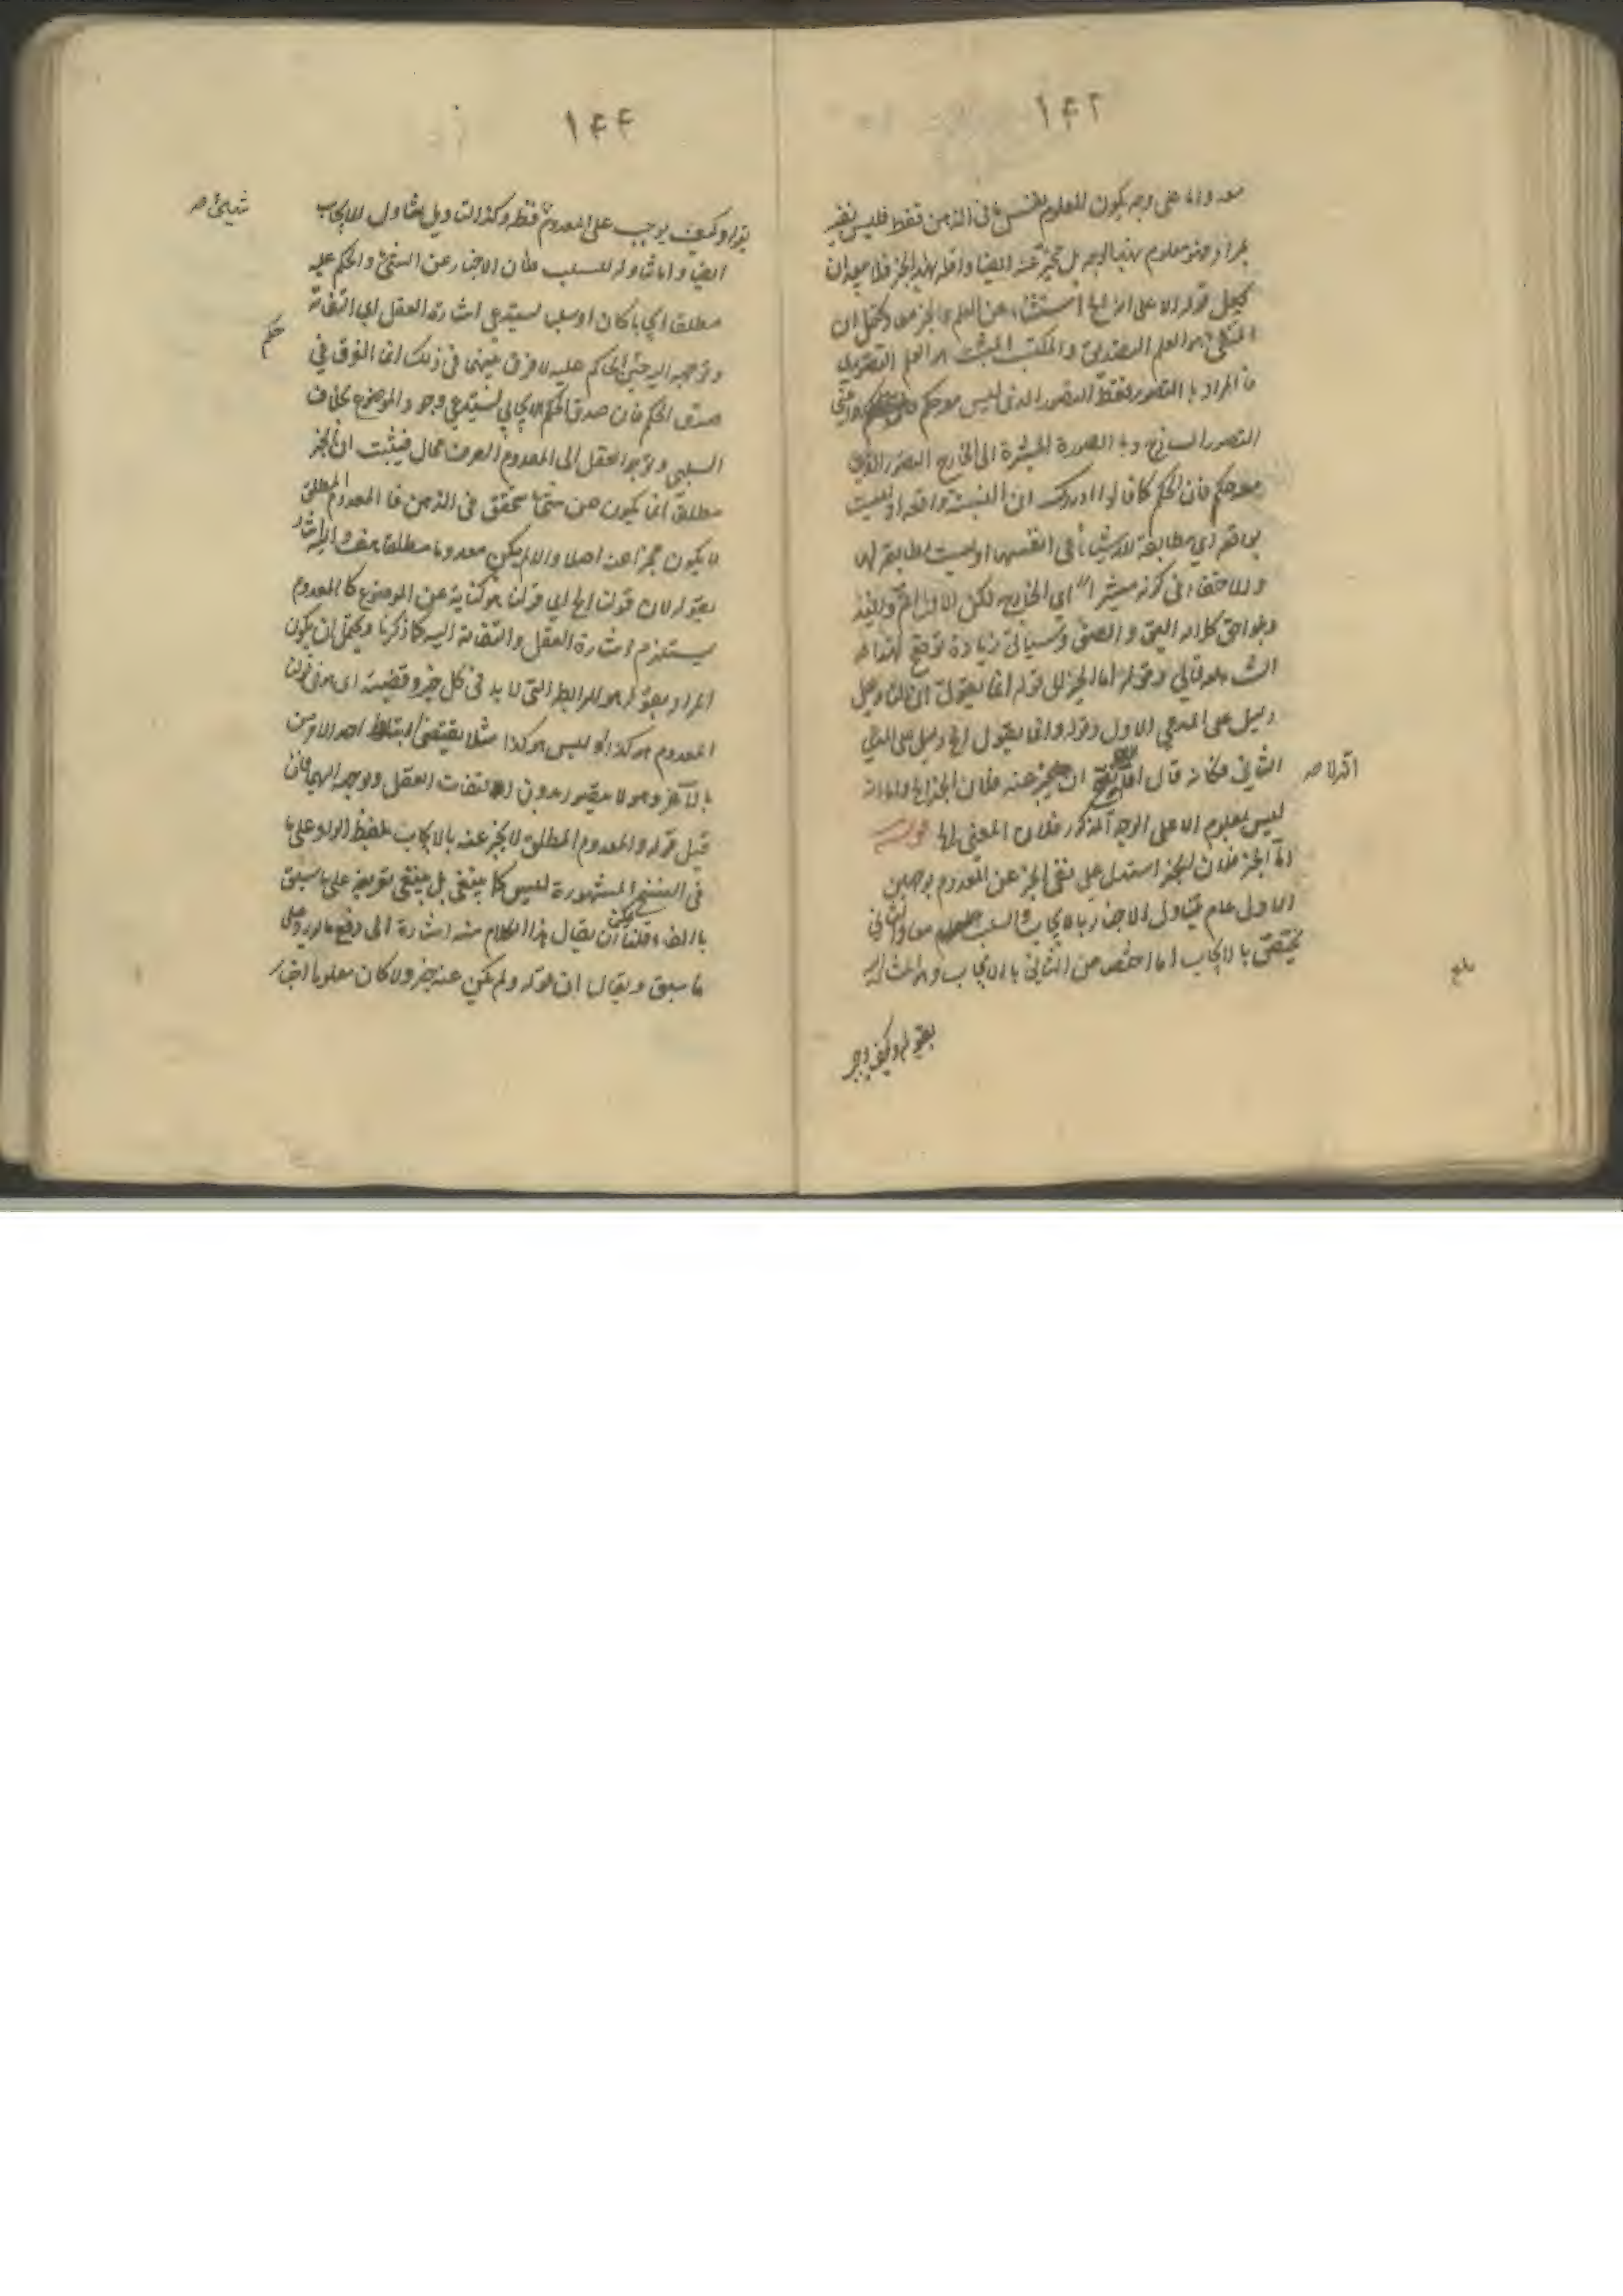 ١٤٢
معدوما على وجه يكون المعلوم نفس في الذهن فقط فليس
معلوم بهذا الوجه بل يخبر عنه ايضا واقله بهذا الخبر فلا يبعد ان
يجعل قوله الا على انه الخ استثناء عن العلم والخبر معا ويحتمل ان
هو العلم التصديقي والمثبت هو العلم التصوري
فالمراد بالتصور فقط التصور الذي ليس معه حكم
التصور الساذج وبالصورة المشيرة الى الخارج التصور الذي
معه حكم فان الحكم كما قالوا ادراك ان النسبة واقعة او ليست
بواقعة اي مطابقة للاشياء في انفسها او ليست مطابقة لها
ولا خفاء في كونه مشيرا الى الخارج لكن الاول اتم وافيد
ويوافق كلام الشيخ وسيأتي زيادة توضيح لهذا
ان شاء الله تعالى وقوله اما الخبر الى قوله انما يقول ان
دليل على المدعي الاول وقوله وانما يقول الخ دليل على المدعي
الثاني فكانه قال ان يخبر عنه فلان الخبر الخ واما انه
اقر لا صح
ليس بمعلوم الا على الوجه المذكور فلان المعنى الخ قوله
اما الخبر فلان الخبر استدل على نفي الخبر عن المعدوم بوجهين
الاول عام يتناول الاخبار بالايجاب والسلب معا والثاني
يختص بالايجاب اما اختص من الثاني بالايجاب
بلغ
بقوله وكيف يوجب
١٤٤
بقوله وكيف يوجب على المعدوم فقط وكذا التأويل يتناول الايجاب
شيئ صح
ايضا واما تناوله للسلب فلان الاخبار عن الشيئ والحكم عليه
مطلقا ايجابا كان او سلبا يستدعي اشارة العقل اي التفاته
وتوجهه اليه حتى الحاكم عليه لا فرق بينهما في ذلك انما الفرق في
حكم
صدق الحكم فان صدق الحكم الايجابي يستدعي وجود الموضوع بخلاف
السلبي وتوجه العقل الى المعدوم الصرف محال فيثبت ان الخبر
مطلقا انما يكون عن شيئ متحقق في الذهن فالمعدوم المطلق
لا يكون مخبرا عنه اصلا والا لم يكن معدوما مطلقا هف واليه اشار
بقوله لان قولنا الخ اي قولنا هو كناية عن الموضوع كالمعدوم
يستلزم اشارة العقل والتفاته اليه كما ذكرنا ويحتمل ان يكون
المراد بقوله هو الرابط التي لا بد في كل خبر وقضية اي هو في قولنا
المعدوم هو كذا او ليس هو كذا مثلا يقتضي ارتباط احد الامرين
بالآخر وهو لا يتصور بدون التفات العقل وتوجهه اليهما فان
قيل قوله والمعدوم المطلق لا يخبر عنه بالايجاب بلفظ الواو على ما
في النسخ المشهورة ليس كما ينبغي بل ينبغي تفريعه على ما سبق
بالفاء قلنا يمكن ان يقال هذا الكلام منه اشارة الى دفع ما يرد على
ما سبق ويقال ان قوله ولم يكن عنه خبر ولا كان معلوما اخبار